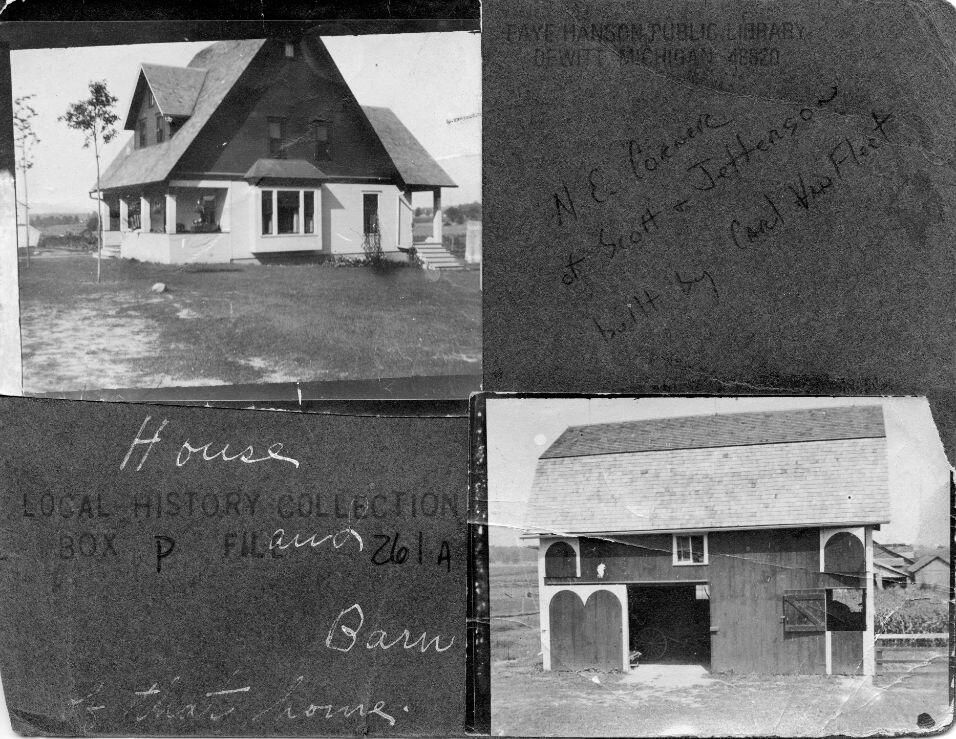 FAYE HANSON PUBLIC LIBRARY
DEWITT, MICHIGAN 48820
N.E. Corner
at Scott & Jefferson
built by Carl Van Fleet
House
LOCAL HISTORY COLLECTION
BOX P FILE 261A
and
Barn
of that home.